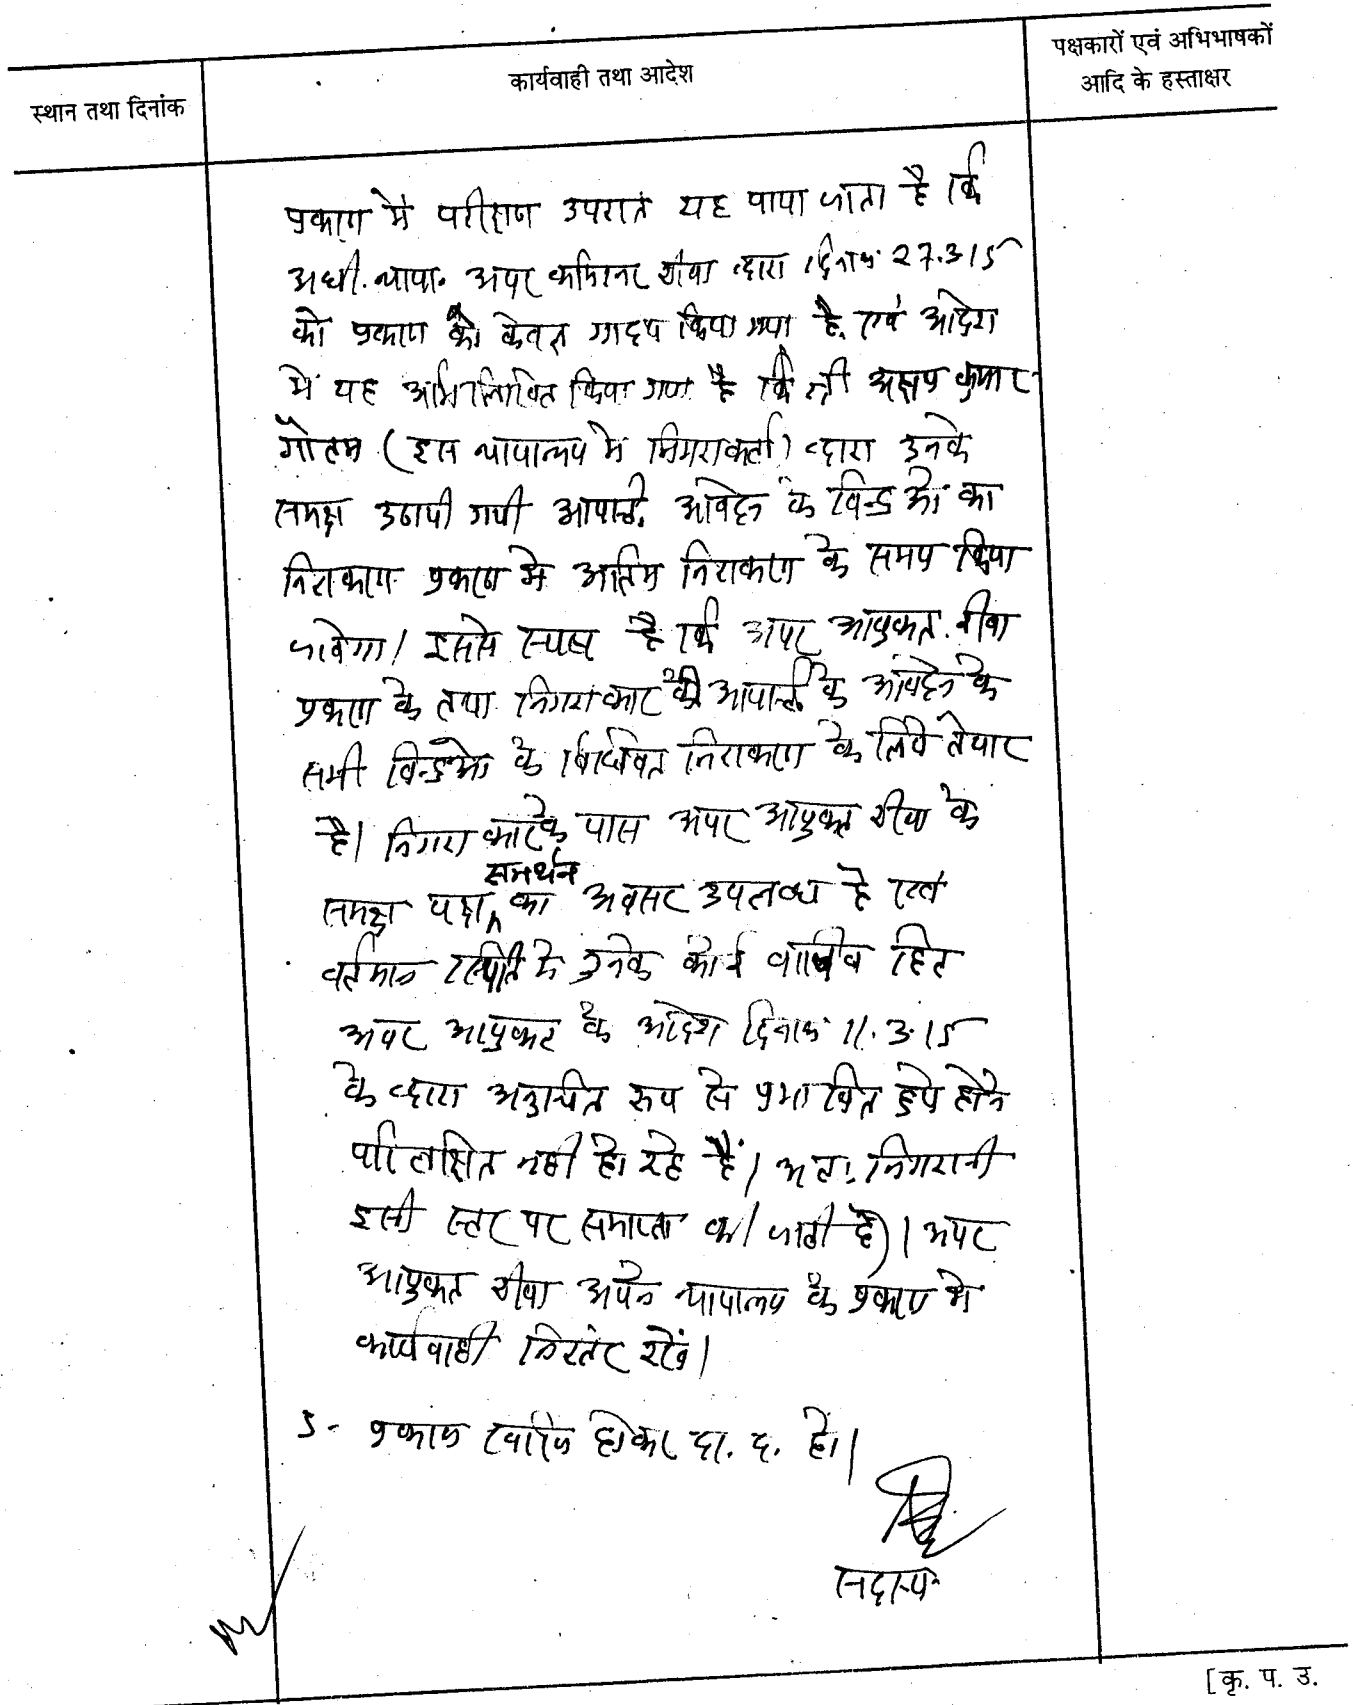 स्थान तथा दिनांक
कार्यवाही तथा आदेश
पक्षकारों एवं अभिभाषकों
आदि के हस्ताक्षर
प्रकरण में परीक्षण उपरांत यह पाया जाता है कि
अधी. न्याया. अपर कमिश्नर रीवा द्वारा दिनांक 27.3.15
को प्रकरण को केवल ग्राह्य किया गया है. एवं आदेश
में यह अभिलिखित किया गया है कि श्री अक्षय कुमार
गौतम (इस न्यायालय में निगराकर्ता) द्वारा उनके
समक्ष उठायी गयी आपत्ति आवेदन के बिन्दुओं का
निराकरण प्रकरण में अंतिम निराकरण के समय किया
जावेगा। इससे स्पष्ट है कि अपर आयुक्त रीवा
प्रकरण के तथा निगराकार की आपत्ति के आवेदन के
सभी बिन्दुओं के विधिवत निराकरण के लिये तैयार
है। निगराकार के पास अपर आयुक्त रीवा के
समर्थन
समक्ष पक्ष का अवसर उपलब्ध है एवं
वर्तमान स्थिति में उनके कोई वाजिब हित
अपर आयुक्त के आदेश दिनांक 11.3.15
के द्वारा अनुचित रूप से प्रभावित हुये होने
परिलक्षित नहीं हो रहे हैं। अतः निगरानी
इसी स्तर पर समाप्त की जाती है)। अपर
आयुक्त रीवा अपने न्यायालय के प्रकरण में
कार्यवाही निरंतर रखें।
3- प्रकरण होकर दा. द. हो।
सदस्य
[कृ. प. उ.